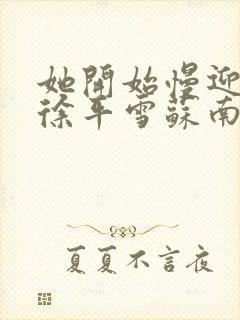 她開始慢迎
徐平雪蘇南
夏夏不言夜